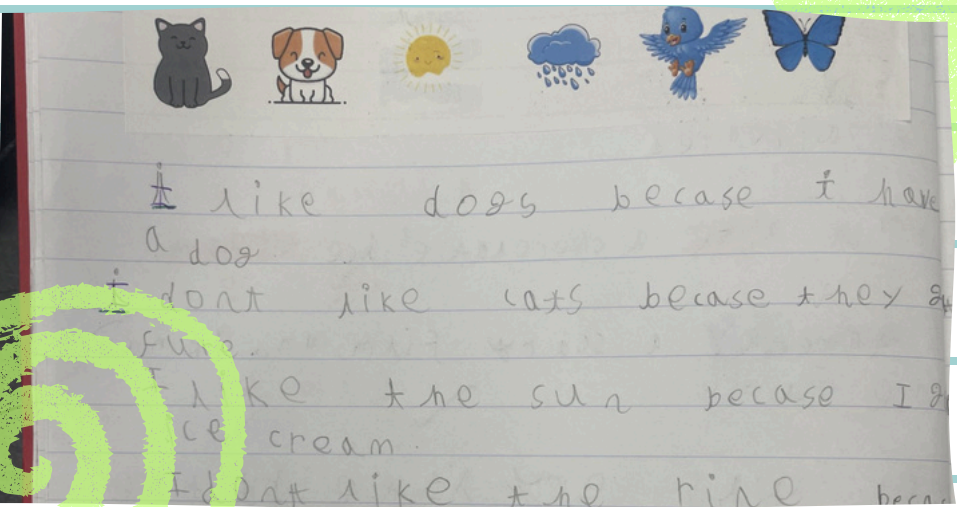 I like dogs becase i have
a dog
I dont like cats becase they
I like the sun becase I
ice cream.
I dont like the rine